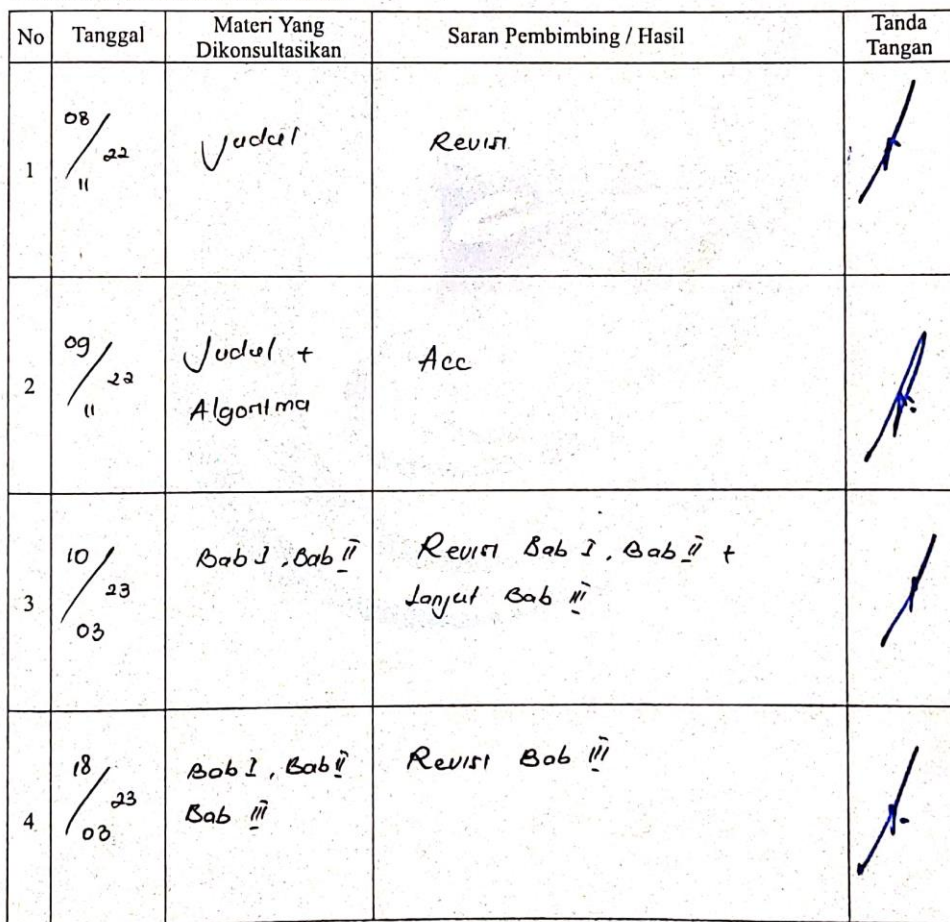 No
Tanggal
Materi Yang
Dikonsultasikan
Saran Pembimbing / Hasil
Tanda
Tangan
1
08/11 22
Judul
Revisi
2
09/11 22
Judul +
Algoritma
Acc
3
10/03 23
Bab I, Bab II
Revisi Bab I, Bab II +
Lanjut Bab III
4
18/03 23
Bab I, Bab II
Bab III
Revisi Bab III